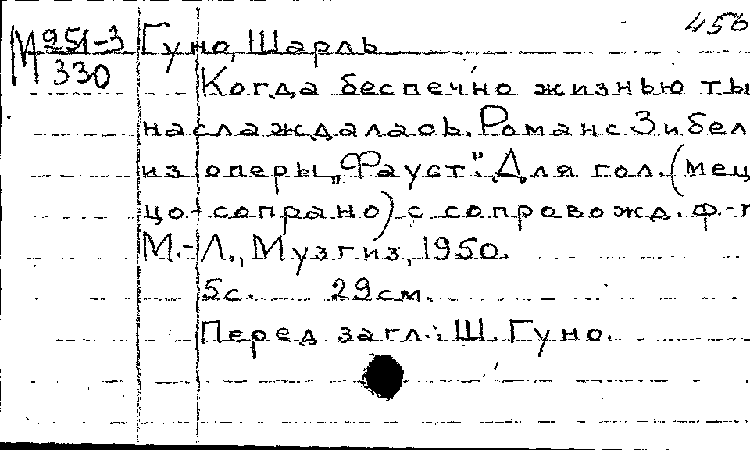 456
М 251-3 Гуно, Шарль
330
Когда беспечно жизнью ты
наслаждалась. Романс Зибел
из оперы „Фауст". Для гол. (мец
цо-сопрано) с сопровожд. ф.-п
М.-Л., Музгиз, 1950.
5с. 29см.
Перед загл.: Ш. Гуно.